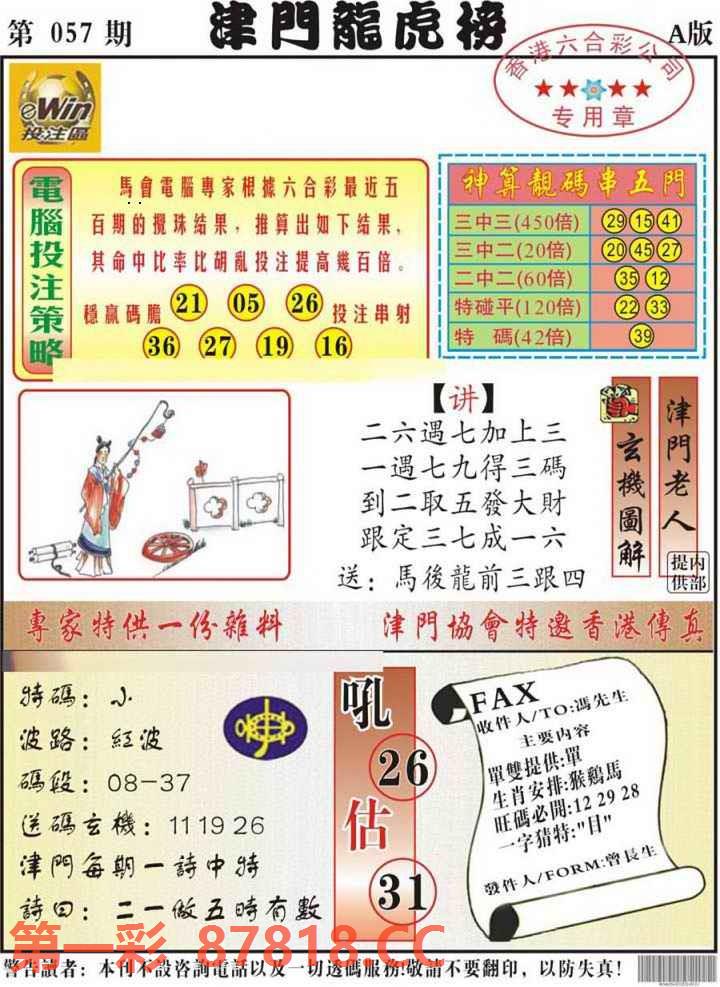 第 057 期
津門龍虎榜
A版
香港六合彩公司
专用章
eWin
投注區
電腦投注策略
馬會電腦專家根據六合彩最近五
百期的攪珠结果，推算出如下结果，
其命中比率比胡亂投注提高幾百倍。
穩赢碼膽 21 05 26 投注串射
36 27 19 16
神算靚碼串五門
三中三(450倍) 29 15 41
三中二(20倍) 20 45 27
二中二(60倍) 35 12
特碰平(120倍) 22 33
特 碼(42倍) 39
【讲】
二六遇七加上三
一遇七九得三碼
到二取五發大財
跟定三七成一六
送：馬後龍前三跟四
玄機圖解
津門老人
内部提供
專家特供一份雜料
津門協會特邀香港傳真
特碼：小
波路：紅波
碼段：08-37
送碼玄機：11 19 26
津門每期一詩中特
詩曰：二一做五時有數
吼
26
估
31
FAX
收件人/TO:馮先生
主要内容
單雙提供:單
生肖安排:猴鷄馬
旺碼必開:12 29 28
一字猜特:"目"
發件人/FORM:曾長生
第一彩 87818.CC
警告讀者：本刊不設咨詢電話以及一切透碼服務!敬請不要翻印，以防失真!